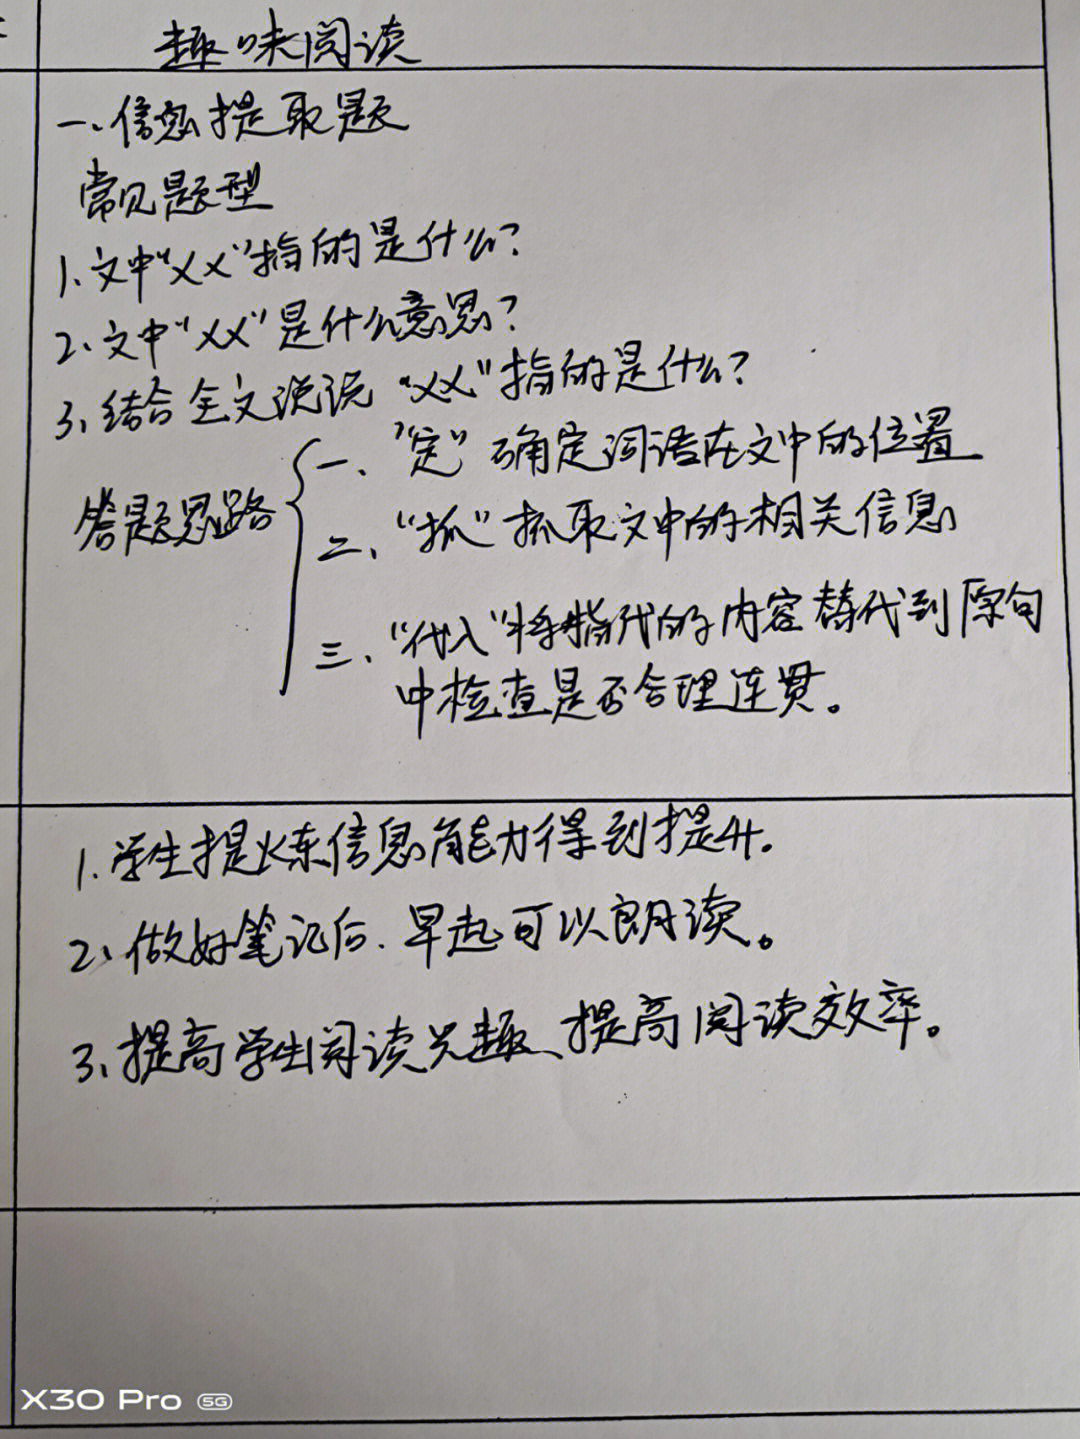 趣味阅读
一、信息提取题
常见题型
1、文中“XX”指的是什么?
2、文中“XX”是什么意思?
3、结合全文说说“XX”指的是什么?
答题思路
一、“定”确定词语在文中的位置
二、“抓”抓取文中的相关信息
三、“代入”将指代的内容替代到原句
中检查是否合理连贯。
1.学生提炼信息能力得到提升.
2、做好笔记后.早起可以朗读。
3、提高学生阅读兴趣、提高阅读效率。
X30 Pro 5G